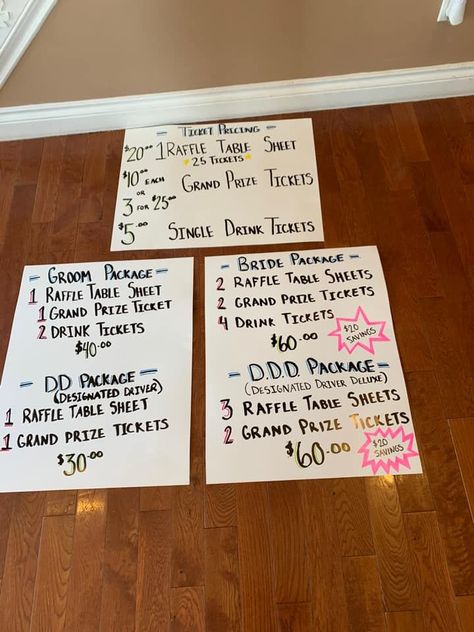 - TICKET PRICING -
$20.00 1 RAFFLE TABLE SHEET
25 TICKETS
$10.00 EACH GRAND PRIZE TICKETS
OR
3 FOR $25.00
$5.00 SINGLE DRINK TICKETS
- GROOM PACKAGE -
1 RAFFLE TABLE SHEET
1 GRAND PRIZE TICKET
2 DRINK TICKETS
$40.00
- DD PACKAGE -
(DESIGNATED DRIVER)
1 RAFFLE TABLE SHEET
1 GRAND PRIZE TICKETS
$30.00
- BRIDE PACKAGE -
2 RAFFLE TABLE SHEETS
2 GRAND PRIZE TICKETS
4 DRINK TICKETS
$60.00
$20 SAVINGS
- D.D.D. PACKAGE -
(DESIGNATED DRIVER DELUXE)
3 RAFFLE TABLE SHEETS
2 GRAND PRIZE TICKETS
$60.00
$20 SAVINGS